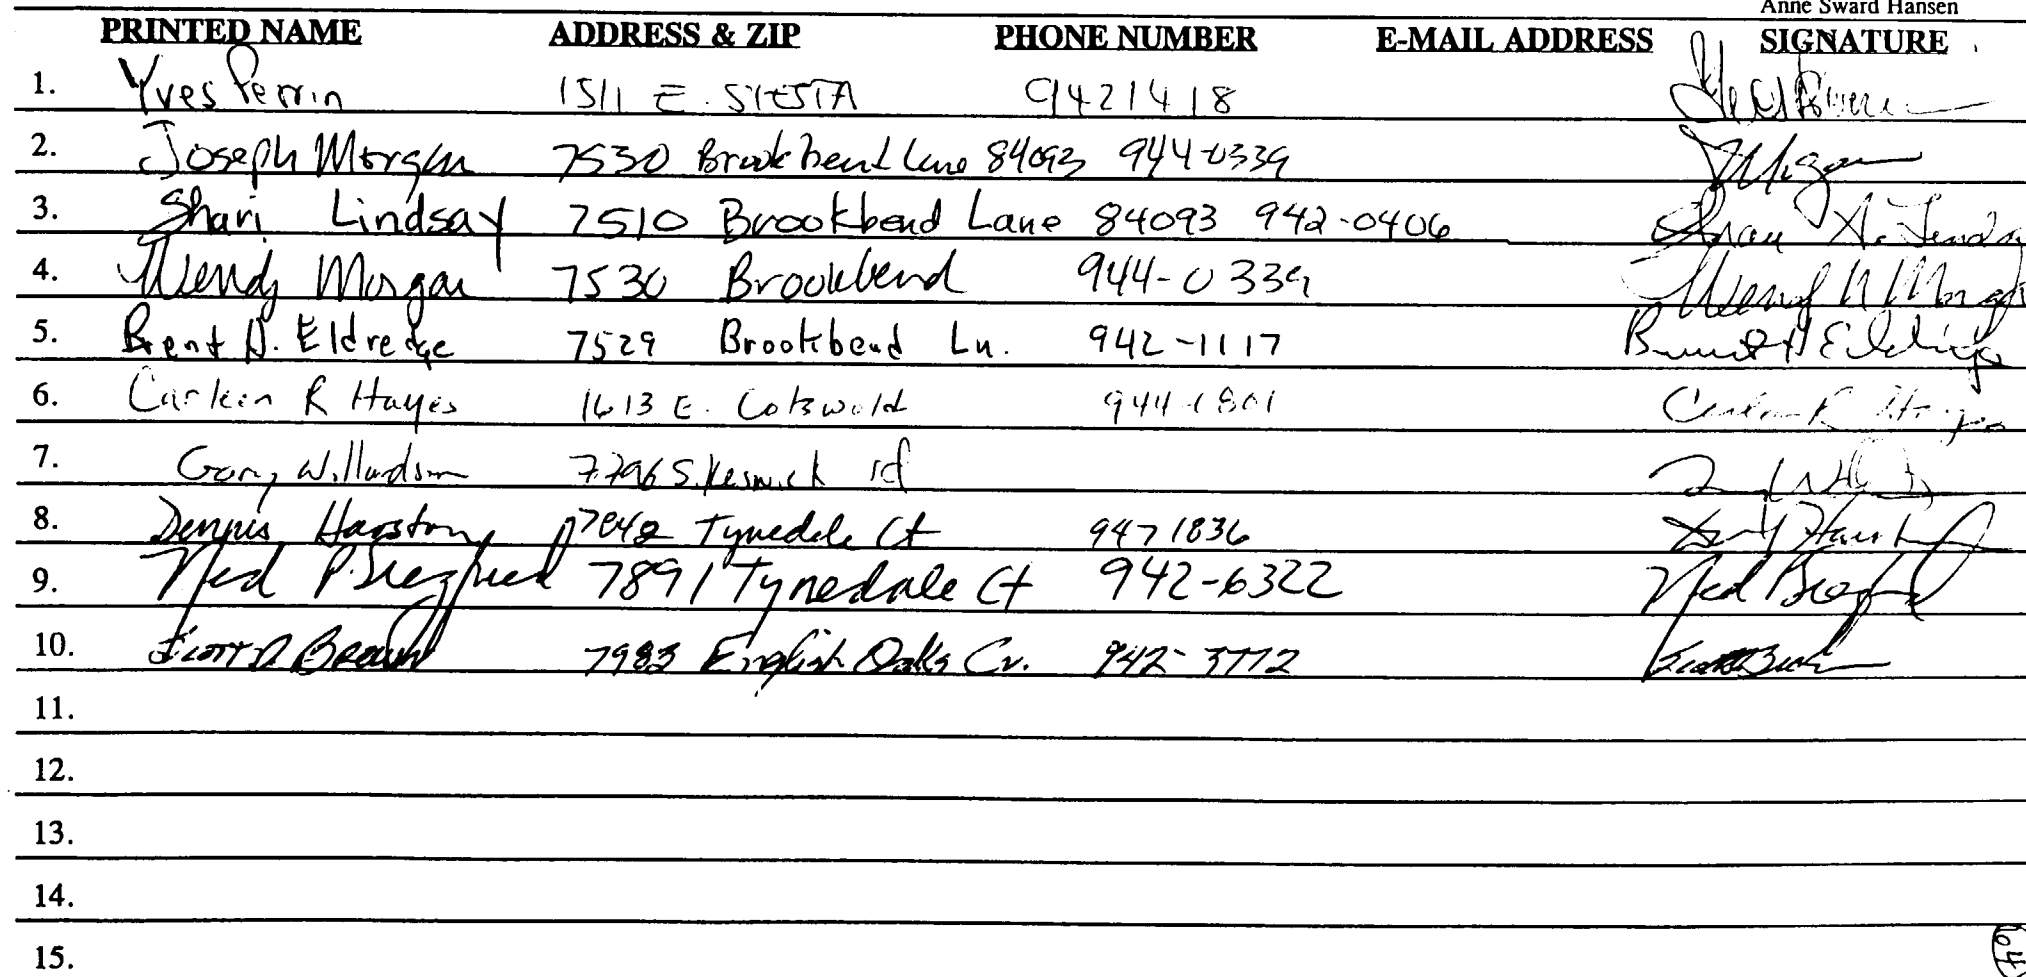 Anne Sward Hansen
PRINTED NAME ADDRESS & ZIP PHONE NUMBER E-MAIL ADDRESS SIGNATURE
1. Yves Perrin 1511 E. SIESTA 9421418
2. Joseph Morgan 7530 Brookbend Lane 84093 944-0339 JMorgan
3. Shari Lindsay 7510 Brookbend Lane 84093 942-0406 Shari A. Lindsay
4. Wendy Morgan 7530 Brookbend 944-0339 Wendy N Morgan
5. Brent D. Eldredge 7529 Brookbend Ln. 942-1117 Brent D Eldredge
6. Carleen R Hayes 1613 E. Cotswold 944-1801 Carleen R Hayes
7. Gary Willardson 7796 S. Keswick rd
8. Dennis Harston 7842 Tynedale Ct 9471836
9. Ned P. Siegfried 7891 Tynedale Ct 942-6322 Ned P Siegfried
10. Scott D Brown 7983 English Oaks Cr. 942-3772 Scott Brown
11.
12.
13.
14.
15.
64